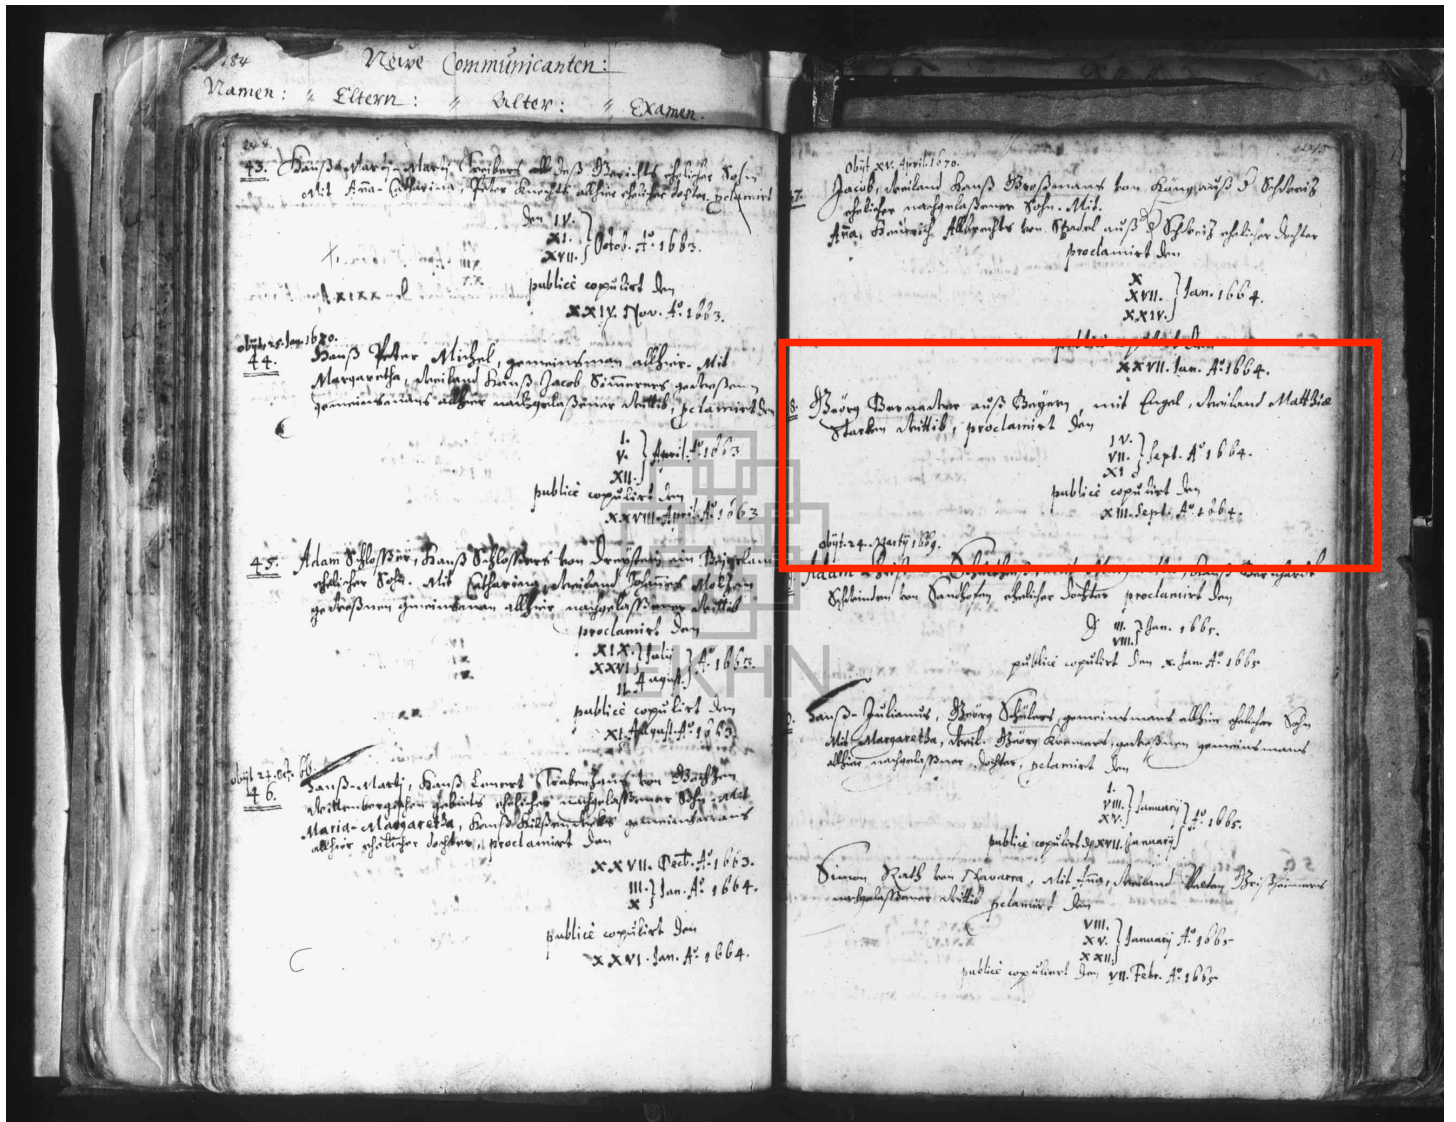 184
Neẅe Communicanten:
Namen: " Eltern: " Alter: " Examen.
43. Hanß Martin
ehelicher Sohn
Mit Anna-Catharina, Peter allhier ehelicher dochter, pclamirt
den IV.
XI.
XVII. } Octob. Aº. 1663.
publicè copulirt den
XXIV. Nov. Aº. 1663.
obijt. 25. Jan. 1670.
44. Hanß Peter Michel, gemeinsman allhier. Mit
Margaretha, weiland Hanß Jacob
gemeinsmans allhier nachgelaßener wittib, pclamirt den
I.
V. } April. Aº. 1663
XII.
publicè copulirt den
XXVIII. April. Aº. 1663
45. Adam Schlosser, Hanß Schlossers von
ehelicher Sohn. Mit Catharina, weiland Johannes
gemeinsman allhier nachgelaßener wittib
proclamirt den
XIX.
XXVI. } Julij
II. August. } Aº. 1663.
publicè copulirt den
XI. August. Aº. 1663.
obijt 24. Oct.
46. Hanß-Martin, Hanß Lenert von
gebiets ehelicher nachgelaßener Sohn. Mit
Maria-Margaretha, Hanß
allhier ehelicher dochter, proclamirt den
XXVII. Decb. Aº. 1663.
III.
X } Jan. Aº. 1664.
publicè copulirt den
XXVI. Jan. Aº. 1664.
obijt XV. April. 1670.
7. Jacob, weiland Hanß Großmans von auß d Schweiz
ehelicher nachgelaßener Sohn. Mit
Aña, Heinrich Albrechts von Stadel auß d Schweiz ehelicher dochter
proclamirt den
X
XVII. } Jan. 1664.
XXIV.
publicè copulirt den
XXVII. Jan. Aº. 1664.
8. Geörg auß Beyern, mit Engel, weiland Matthiæ
Starken wittib, proclamirt den
IV.
VII. } Sept. Aº. 1664.
XI
publicè copulirt den
XIII. Sept. Aº. 1664.
obijt. 24. Martij 1669.
Adam Hanß Bernhardt
von Sandhofen ehelicher dochter proclamirt den
III.
VIII. } Jan. 1665.
publicè copulirt den X. Jan. Aº. 1665
Hanß-Julianus, Geörg Schülers, gemeinsmans allhier ehelicher Sohn
Mit Margaretha, weil. Geörg Kremers, gemeinsmans
allhier nachgelaßner dochter, pclamirt den
I.
VIII. } January
XV. } Aº. 1665.
publicè copulirt d XVII. January
Simon Rath von Navarra, Mit Aña, weiland Velten
nachgelaßener wittib pclamirt den
VIII.
XV. } January Aº. 1665
XXII.
publicè copuliert den VII. Febr. Aº. 1665
EKHN